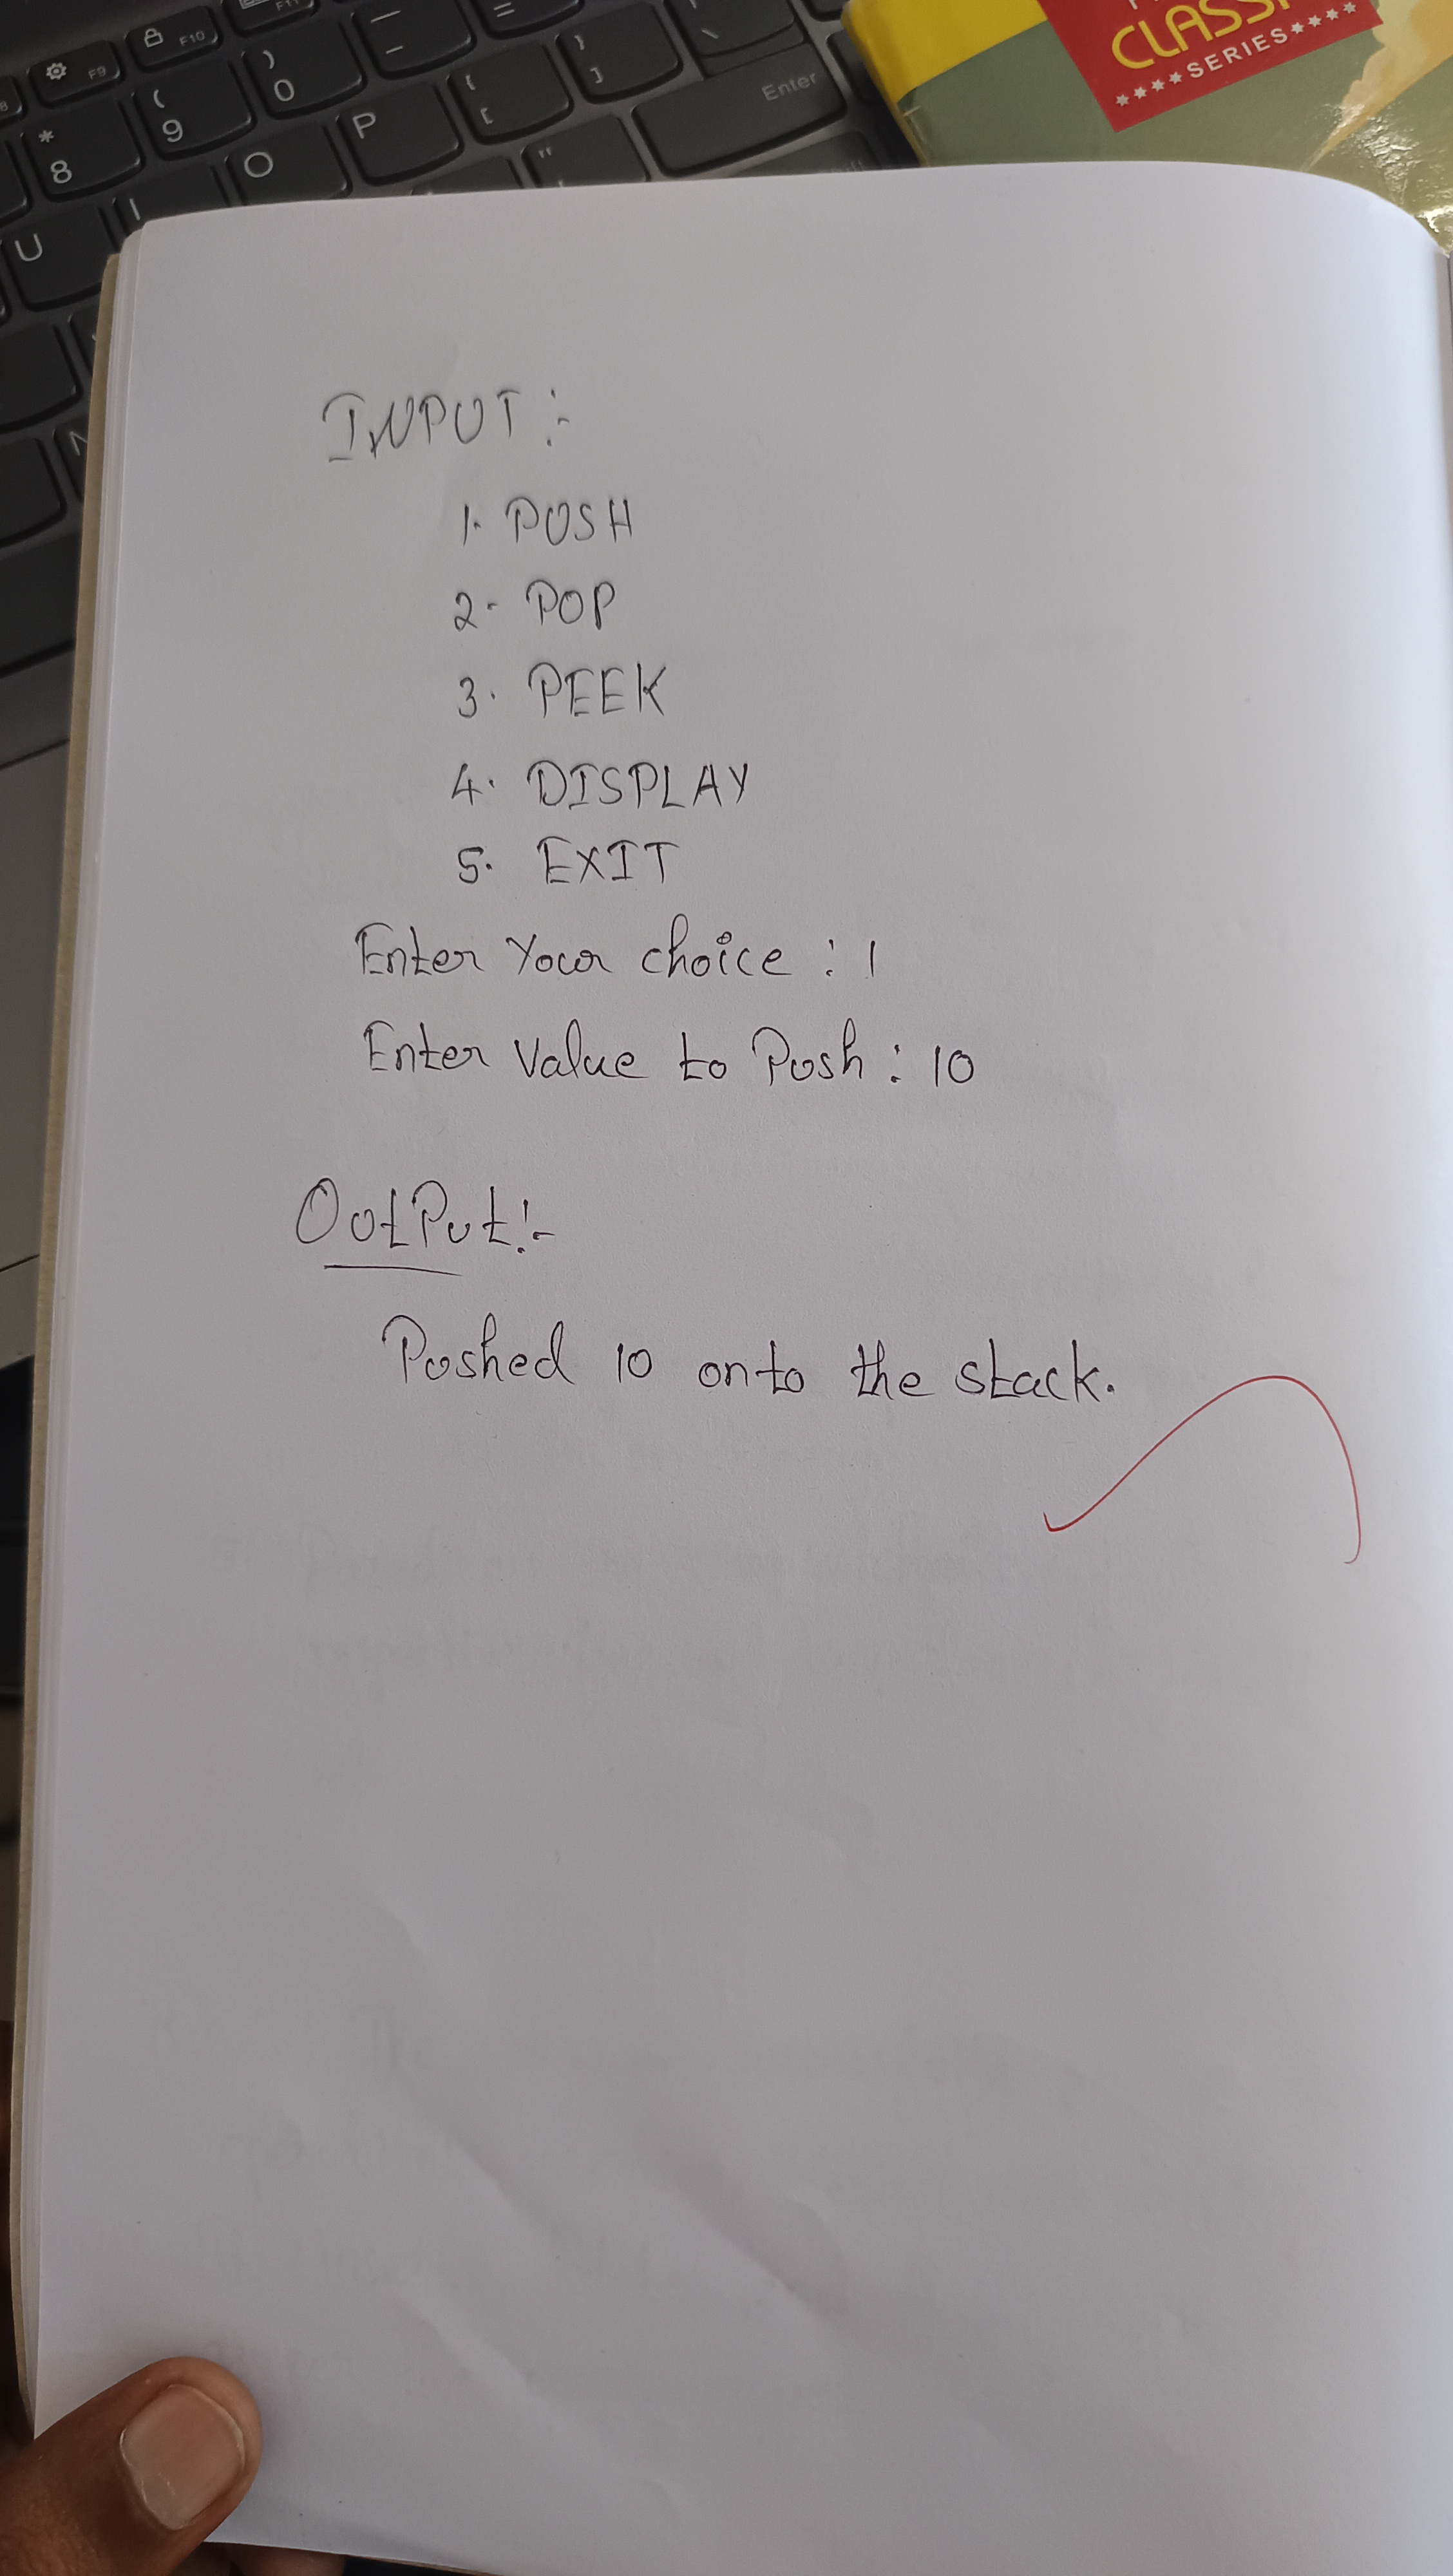 F9
F10
F11
* 8
( 9
) 0
— -
= 
} ]
{ [
| \
Enter
U
I
O
P
" '
CLASSI
****SERIES****
INPUT :-
1. PUSH
2. POP
3. PEEK
4. DISPLAY
5. EXIT
Enter Your choice : 1
Enter Value to Push : 10
OutPut:-
Pushed 10 onto the stack.